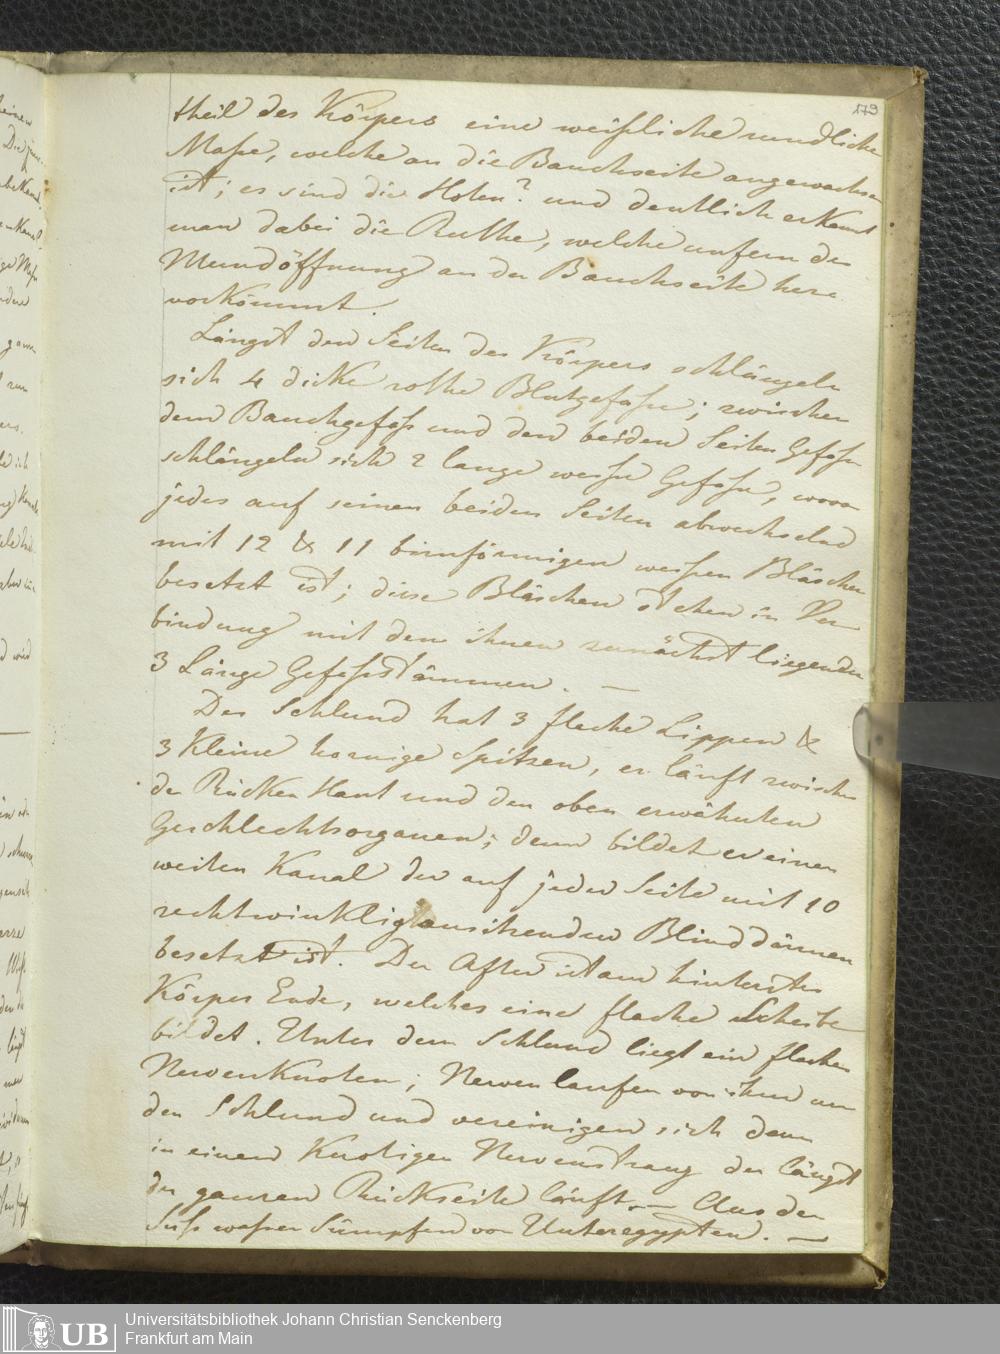 179
theil des Körpers eine weißliche rundliche
Maße, welche an die Bauchseite angewachsen
ist; es sind die Hoden? und deutlich erkennt
man dabei die Ruthe, welche unfern der
Mundöffnung an der Bauchseite her=
vorkömmt.
Längst den Seiten des Körpers schlängeln
sich 4 dicke rothe Blutgefaße; zwischen
dem Bauchgefaß und den beiden Seiten Gefaßen
schlängeln sich 2 lange weiße Gefaße, wovon
jedes auf seinen beiden Seiten abwechselnd
mit 12 & 11 birnförmigen weißen Bläschen
besetzt ist; diese Bläschen stehen in Ver
bindung mit den ihnen zunächst liegenden
3 Länge Gefaßstämmen. —
Der Schlund hat 3 flache Lippen &
3 kleine hornige Spitzen, er läuft zwischen
der Rücken Haut und den oben erwähnten
Geschlechtsorganen; dann bildet er einen
weiten Kanal der auf jeder Seite mit 10
rechtwinklig ansitzenden Blinddärmen
besetzt ist. Der After ist am hintersten
Körper Ende, welches eine flache Scheibe
bildet. Unter dem Schlund liegt ein flacher
Nervenknoten; Nerven laufen von ihm um
den Schlund und vereinigen sich dann
in einen knotigen Nervenstrang der längst
der ganzen Rückseite läuft. — Aus den
Süß waßer Sümpfen von Unteregypten. —
UB
Universitätsbibliothek Johann Christian Senckenberg
Frankfurt am Main